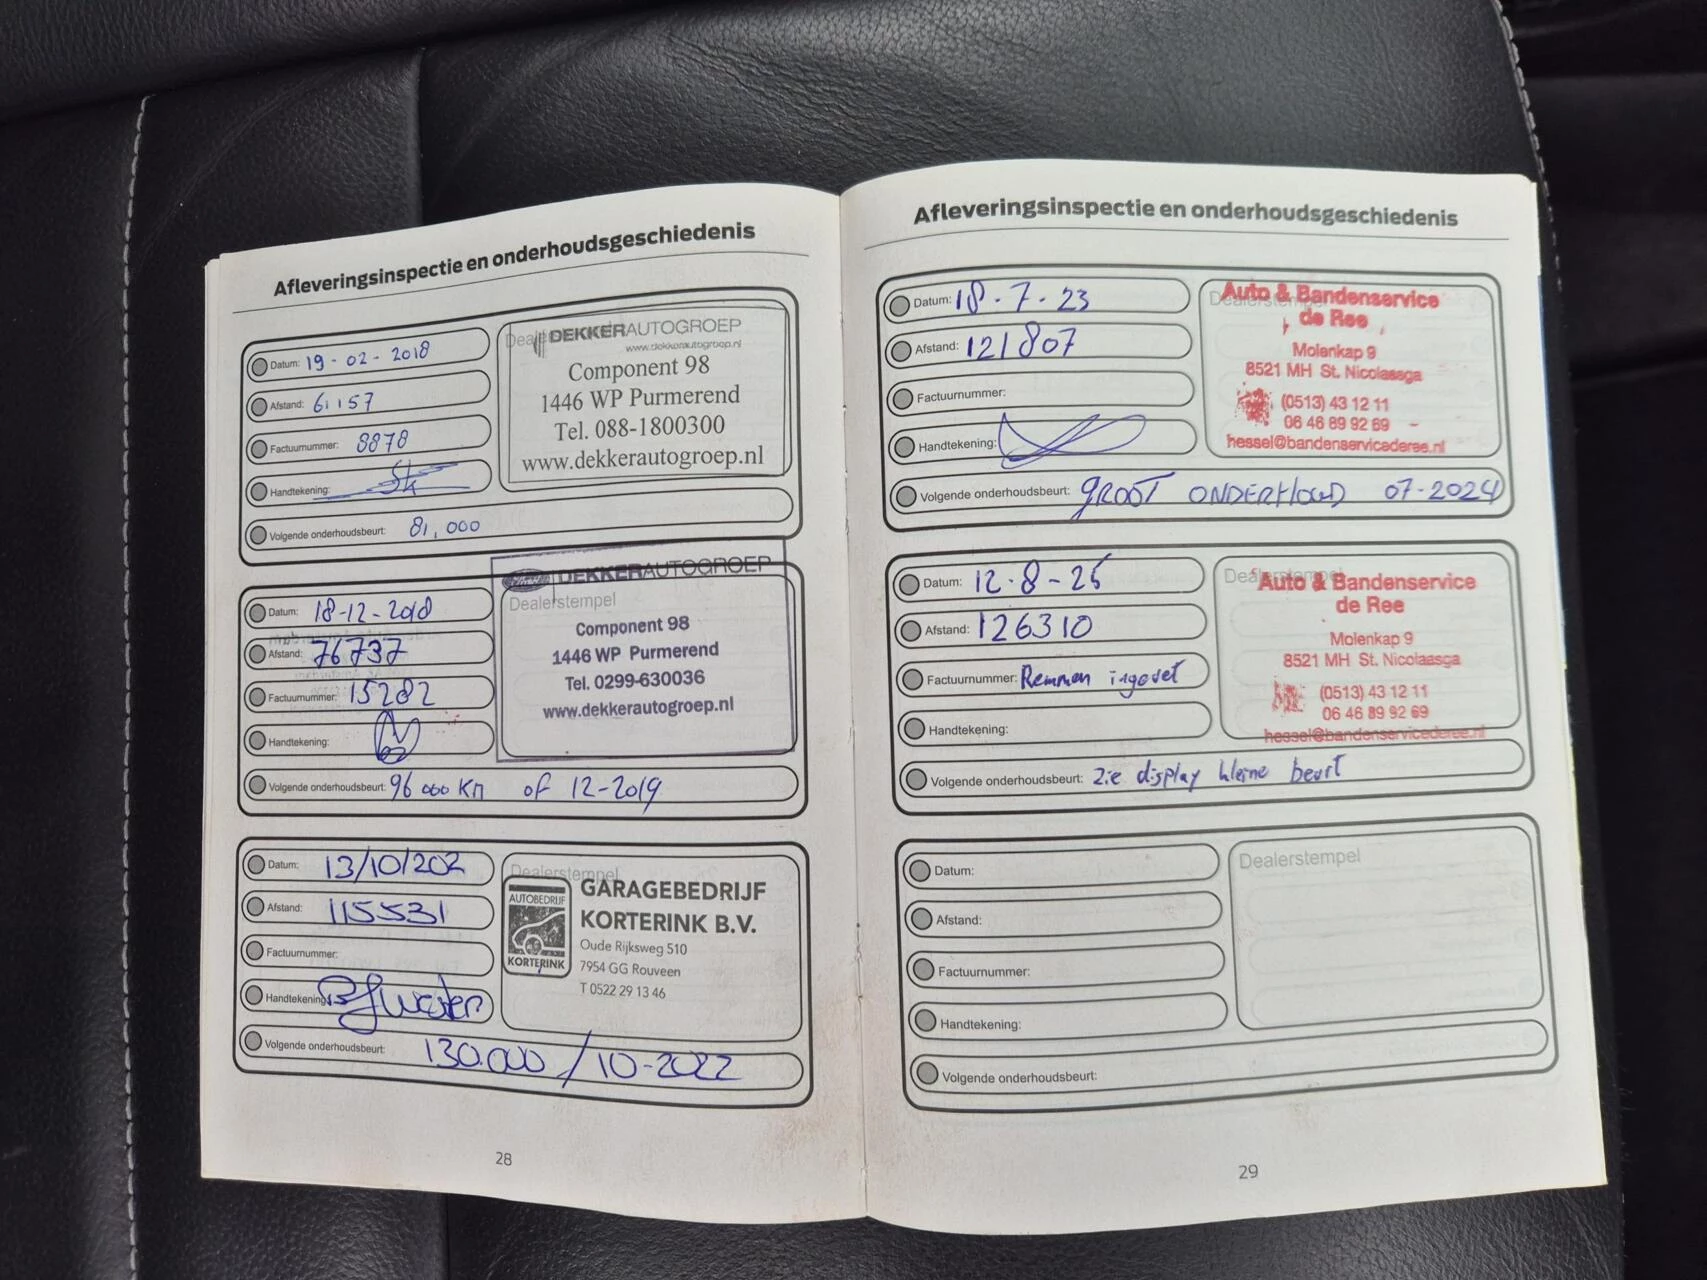 Afleveringsinspectie en onderhoudsgeschiedenis
Datum: 19-02-2018
Afstand: 61157
Factuurnummer: 8878
Handtekening:
Volgende onderhoudsbeurt: 81,000
DEKKERAUTOGROEP
www.dekkerautogroep.nl
Component 98
1446 WP Purmerend
Tel. 088-1800300
www.dekkerautogroep.nl
Datum: 18-12-2018
Afstand: 76737
Factuurnummer: 15282
Handtekening:
Volgende onderhoudsbeurt: 96 000 KM of 12-2019
DEKKERAUTOGROEP
Dealerstempel
Component 98
1446 WP Purmerend
Tel. 0299-630036
www.dekkerautogroep.nl
Datum: 13/10/202
Afstand: 115531
Factuurnummer:
Handtekening:
Volgende onderhoudsbeurt: 130.000 / 10-2022
Dealerstempel
AUTOBEDRIJF
KORTERINK
GARAGEBEDRIJF
KORTERINK B.V.
Oude Rijksweg 510
7954 GG Rouveen
T 0522 29 13 46
28
Afleveringsinspectie en onderhoudsgeschiedenis
Datum: 18-7-23
Afstand: 121807
Factuurnummer:
Handtekening:
Volgende onderhoudsbeurt: GROOT ONDERHOUD 07-2024
Auto & Bandenservice
de Ree
Molenkap 9
8521 MH St. Nicolaasga
(0513) 43 12 11
06 46 89 92 69
hessel@bandenservicederee.nl
Datum: 12-8-25
Afstand: 126310
Factuurnummer: Remmen ingevet
Handtekening:
Volgende onderhoudsbeurt: Zie display kleine beurt
Auto & Bandenservice
de Ree
Molenkap 9
8521 MH St. Nicolaasga
(0513) 43 12 11
06 46 89 92 69
hessel@bandenservicederee.nl
Datum:
Afstand:
Factuurnummer:
Handtekening:
Volgende onderhoudsbeurt:
Dealerstempel
29